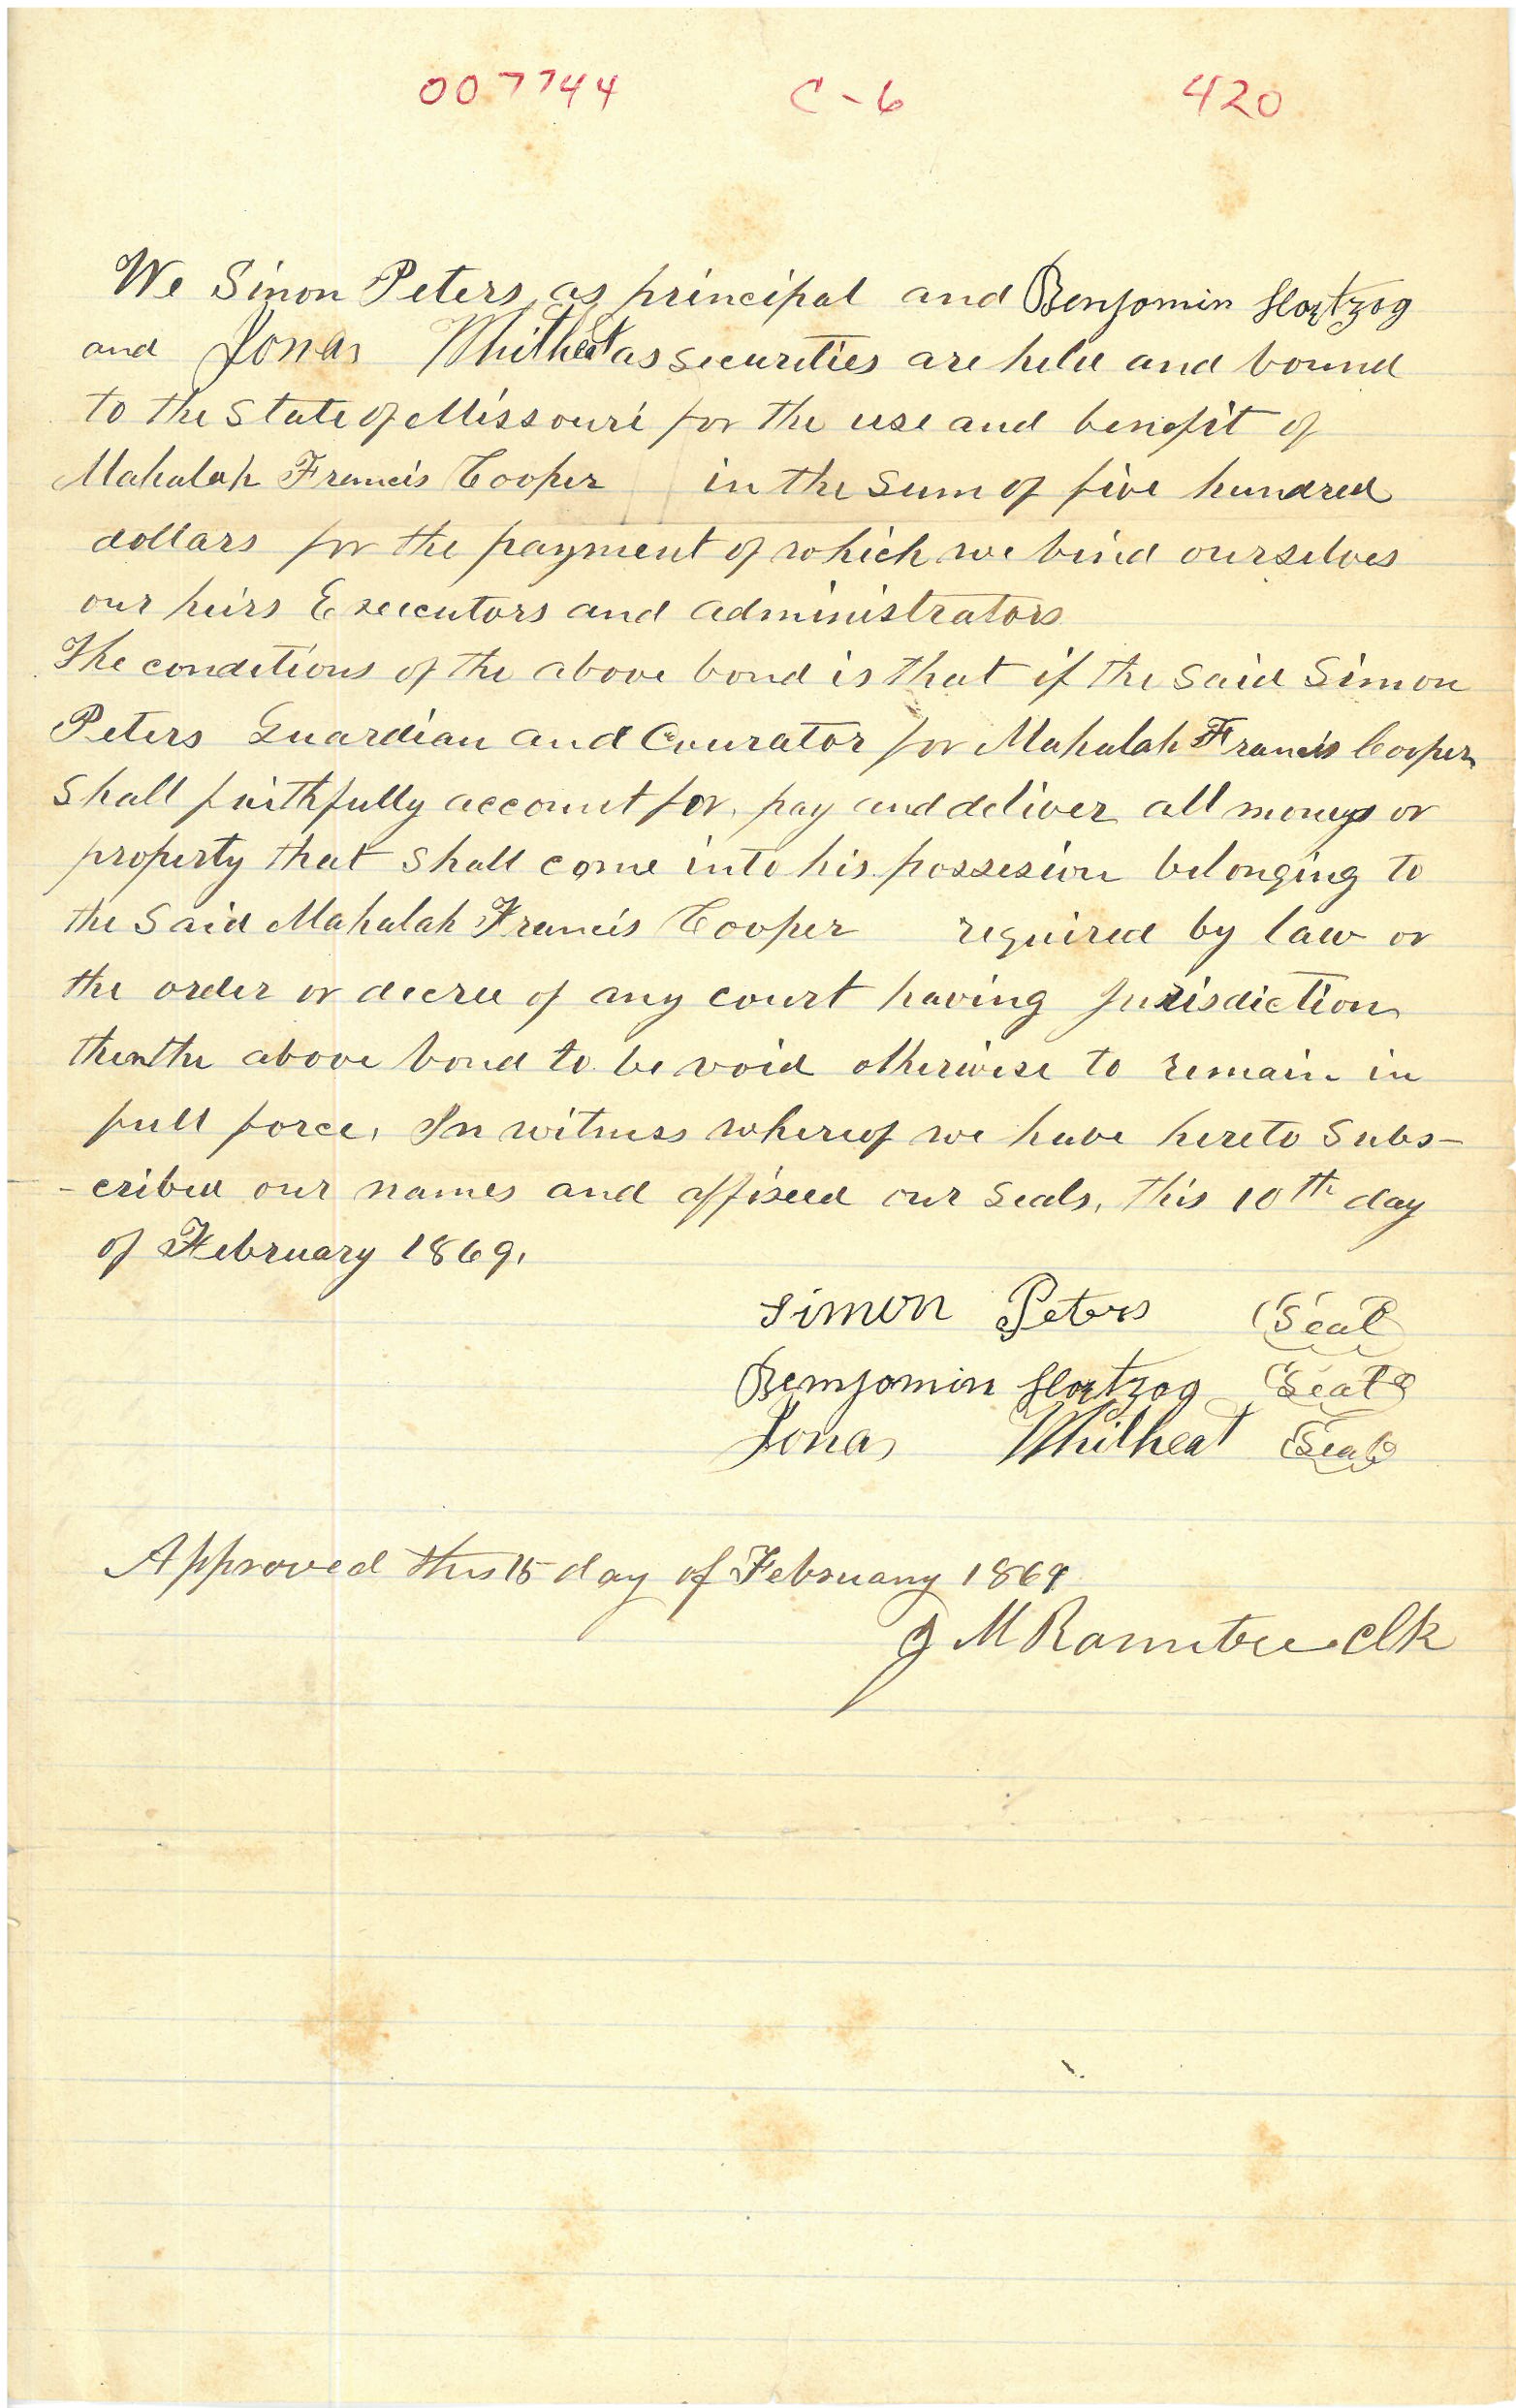 007744 C-6 420
We Simon Peters, as principal and Benjamin Hartzog
and Jonas Whitheat as securities are held and bound
to the State of Missouri for the use and benefit of
Mahalah Francis Cooper in the sum of five hundred
dollars for the payment of which we bind ourselves
our heirs Executors and administrators
The conditions of the above bond is that if the said Simon
Peters Guardian and Courator for Mahalah Francis Cooper
shall faithfully account for, pay and deliver all moneys or
property that shall come into his possesion belonging to
the said Mahalah Francis Cooper required by law or
the order or decree of any court having jurisdiction
then the above bond to be void otherwise to remain in
full force, In witness whereof we have hereto subs-
-cribed our names and affixed our seals, this 10th day
of February 1869.
Simon Peters (Seal)
Benjamin Hartzog (Seal)
Jonas Whitheat (Seal)
Approved this 15 day of February 1869
J M Rountree Clk